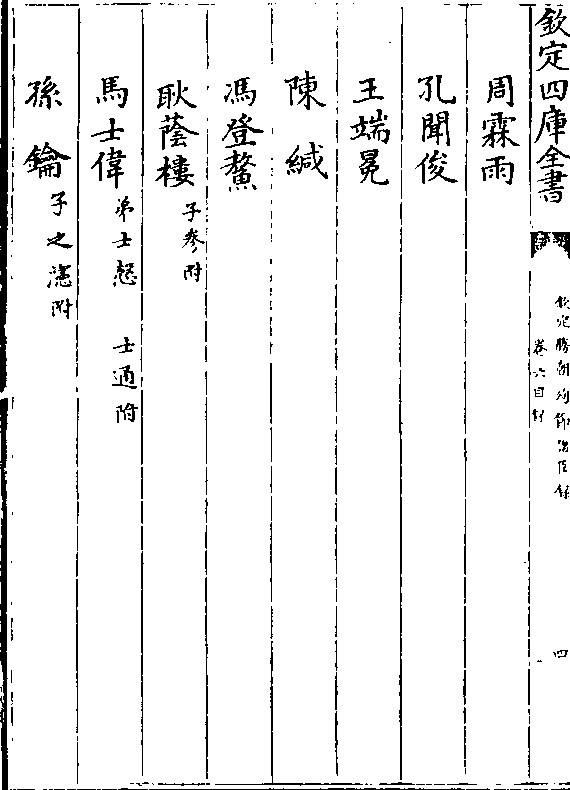 欽定四庫全書
欽定勝朝殉節諸臣錄
卷六目録
四
周霖雨
孔聞俊
王端冕
陳緘
馮登鰲
耿蔭樓 子參附
馬士偉 弟士 士通附
孫鑰 子之附